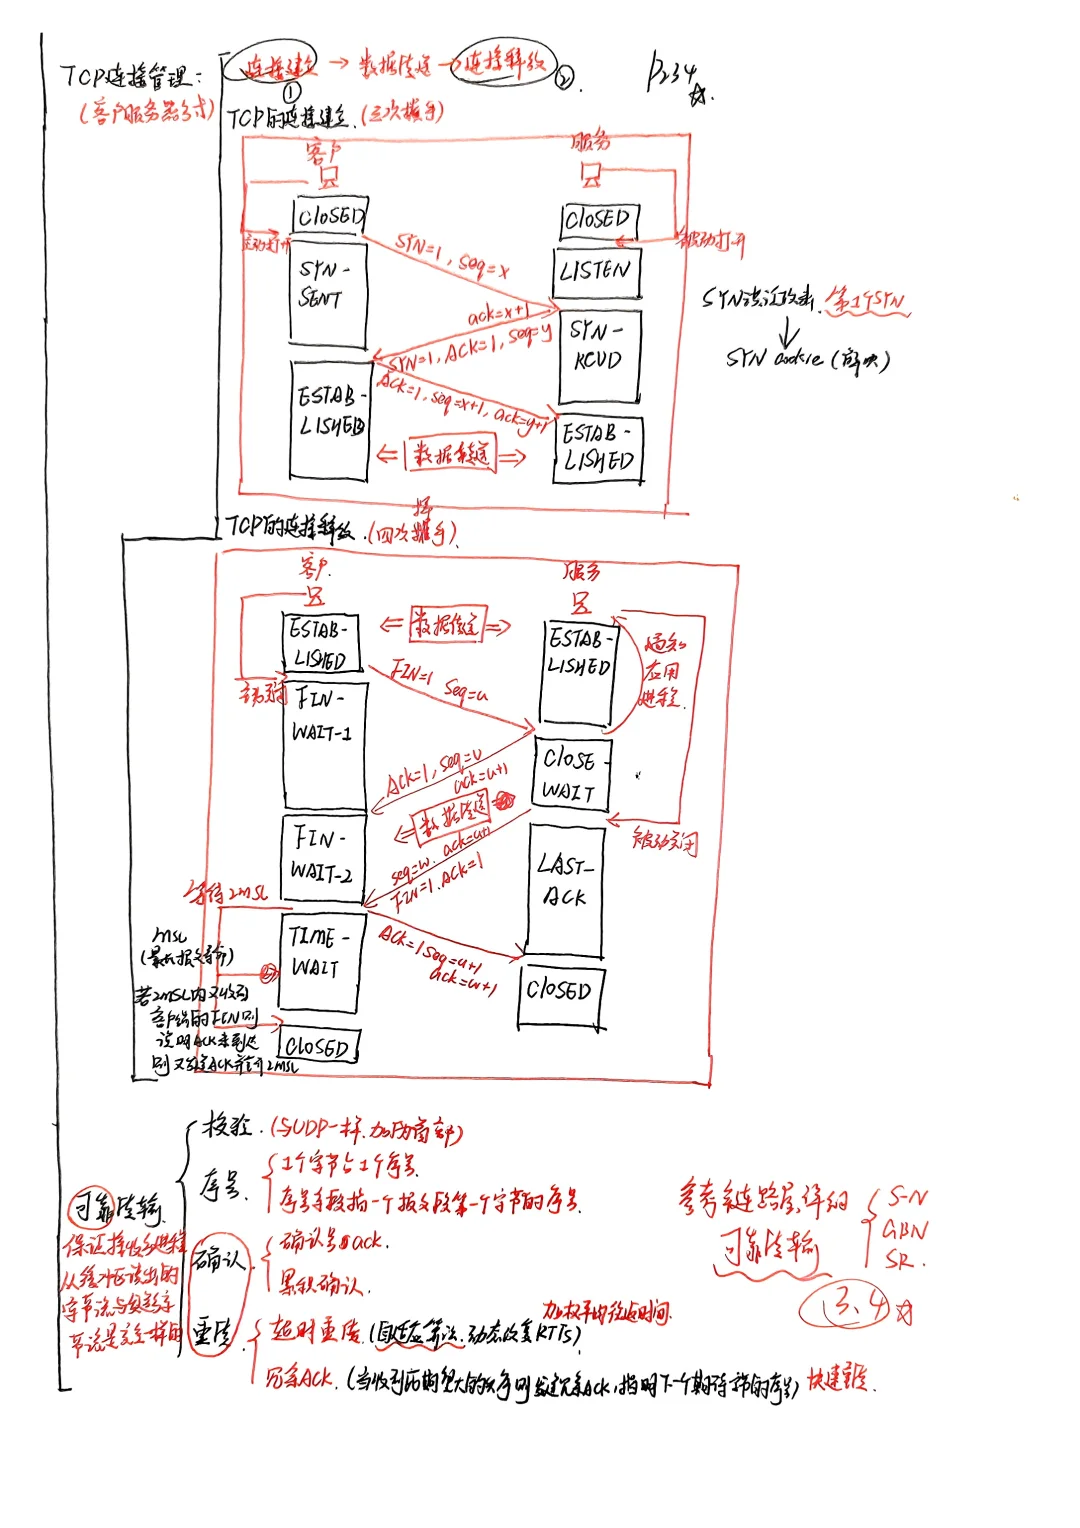 TCP连接管理:
(客户服务器方式)
连接建立 → 数据传送 → 连接释放
① ②.
P234 ☆.
TCP的连接建立.(三次握手)
客户
服务
CLOSED
CLOSED
主动打开
被动打开
SYN=1, seq=x
SYN-
SENT
LISTEN
SYN洪泛攻击.第1个SYN
↓
SYN cookie (解决)
ack=x+1
SYN=1, ACK=1, seq=y
SYN-
RCVD
ACK=1, seq=x+1, ack=y+1
ESTAB-
LISHED
ESTAB-
LISHED
⇐ 数据传送 ⇒
挥
TCP的连接释放.(四次握手).
客户.
服务
ESTAB-
LISHED
⇐ 数据传送 ⇒
ESTAB-
LISHED
通知
应用
进程.
FIN=1 seq=u
FIN-
WAIT-1
CLOSE-
WAIT
ACK=1, seq=v
ack=u+1
⇐ 数据传送
被动关闭
FIN-
WAIT-2
seq=w. ack=u+1
FIN=1. ACK=1
LAST-
ACK
等待2MSL
TIME-
WAIT
ACK=1 seq=u+1
ack=w+1
MSL
(最长报文寿命)
CLOSED
若2MSL内又收到
客户端的FIN则
说明ACK未到达
则又发送ACK并重开2MSL
CLOSED
可靠传输.
保证接收方进程
从缓冲区读出的
字节流与发送字
节流是完全一样的
校验.(与UDP一样.加伪首部)
序号.
1个字节占1个序号.
序号字段指一个报文段第一个字节的序号.
确认.
确认号ack.
累积确认.
重传
加权平均往返时间.
超时重传.(自适应算法.动态改变RTTs)
冗余ACK.(当收到比期望大的失序则发送冗余ACK,指明下一个期待字节的序号) 快速重传.
参考链路层.详细
可靠传输
S-N
GBN
SR.
(3.4)☆